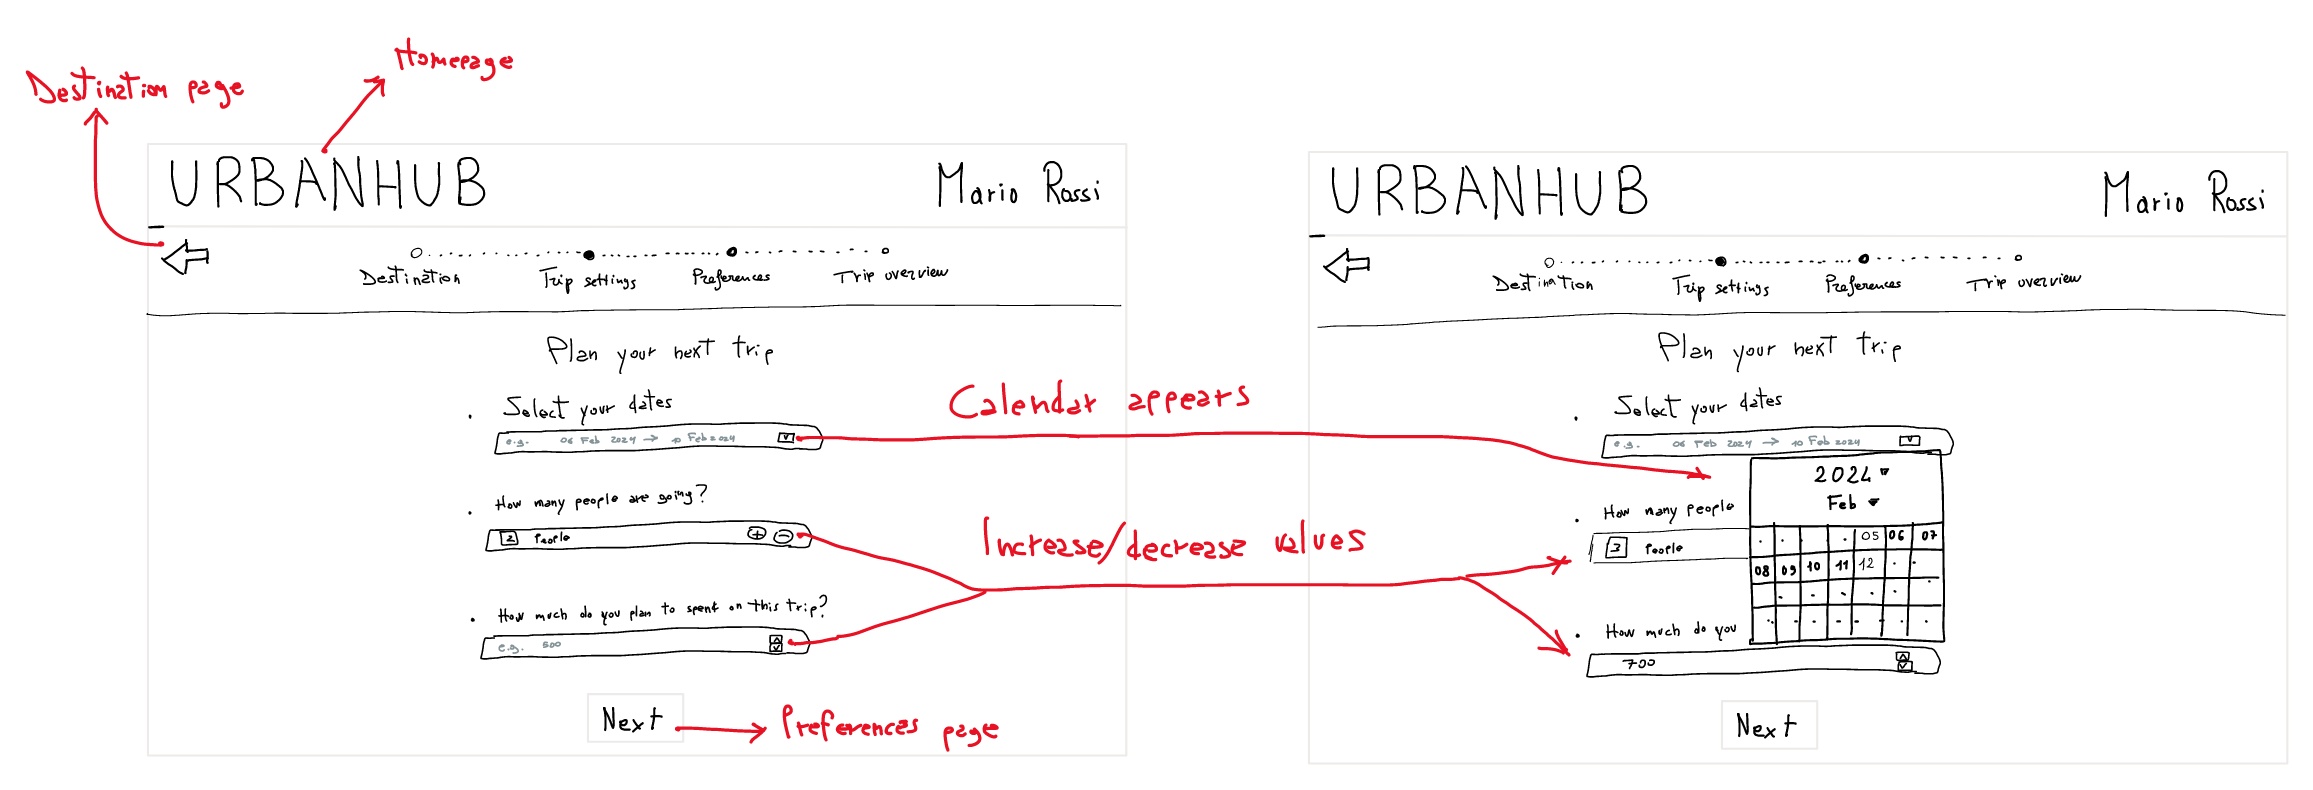 Homepage
Destination page
URBANHUB
Mario Rossi
Destination
Trip settings
Preferences
Trip overview
Plan your next trip
. Select your dates
e.g. 06 Feb 2024 → 10 Feb 2024
v
. How many people are going?
2 People + −
. How much do you plan to spent on this trip?
e.g. 500
Next
Preferences page
Calendar appears
Increase/decrease values
URBANHUB
Mario Rossi
Destination
Trip settings
Preferences
Trip overview
Plan your next trip
. Select your dates
e.g. 06 Feb 2024 → 10 Feb 2024
v
2024
Feb
. . . . 05 06 07
08 09 10 11 12 . .
. How many people
3 People
. How much do you
700
Next